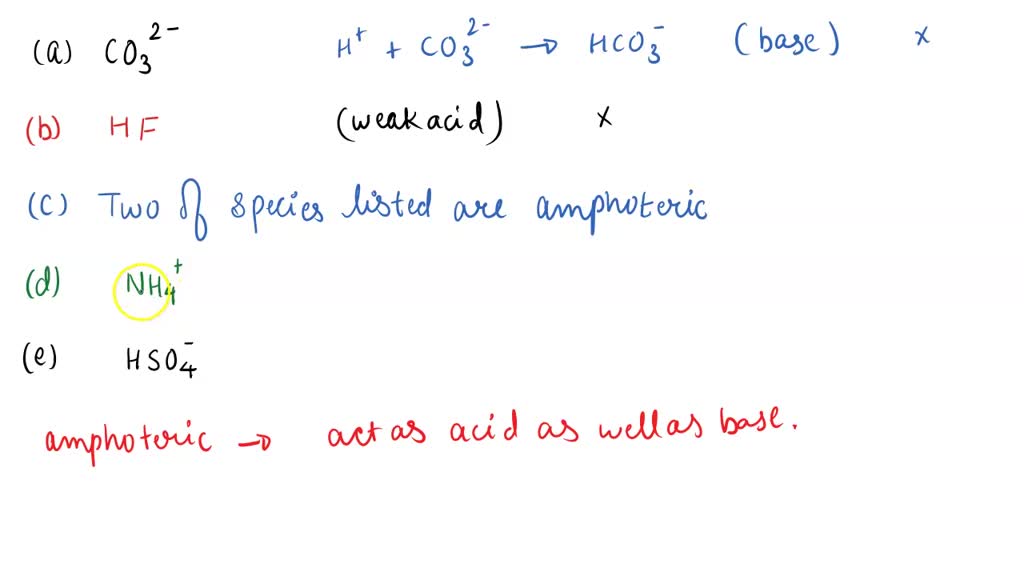 (a) CO₃²⁻ H⁺ + CO₃²⁻ → HCO₃⁻ (base) x
(b) HF (weak acid) x
(c) Two of species listed are amphoteric
(d) NH₄⁺
(e) HSO₄⁻
amphoteric → act as acid as well as base.